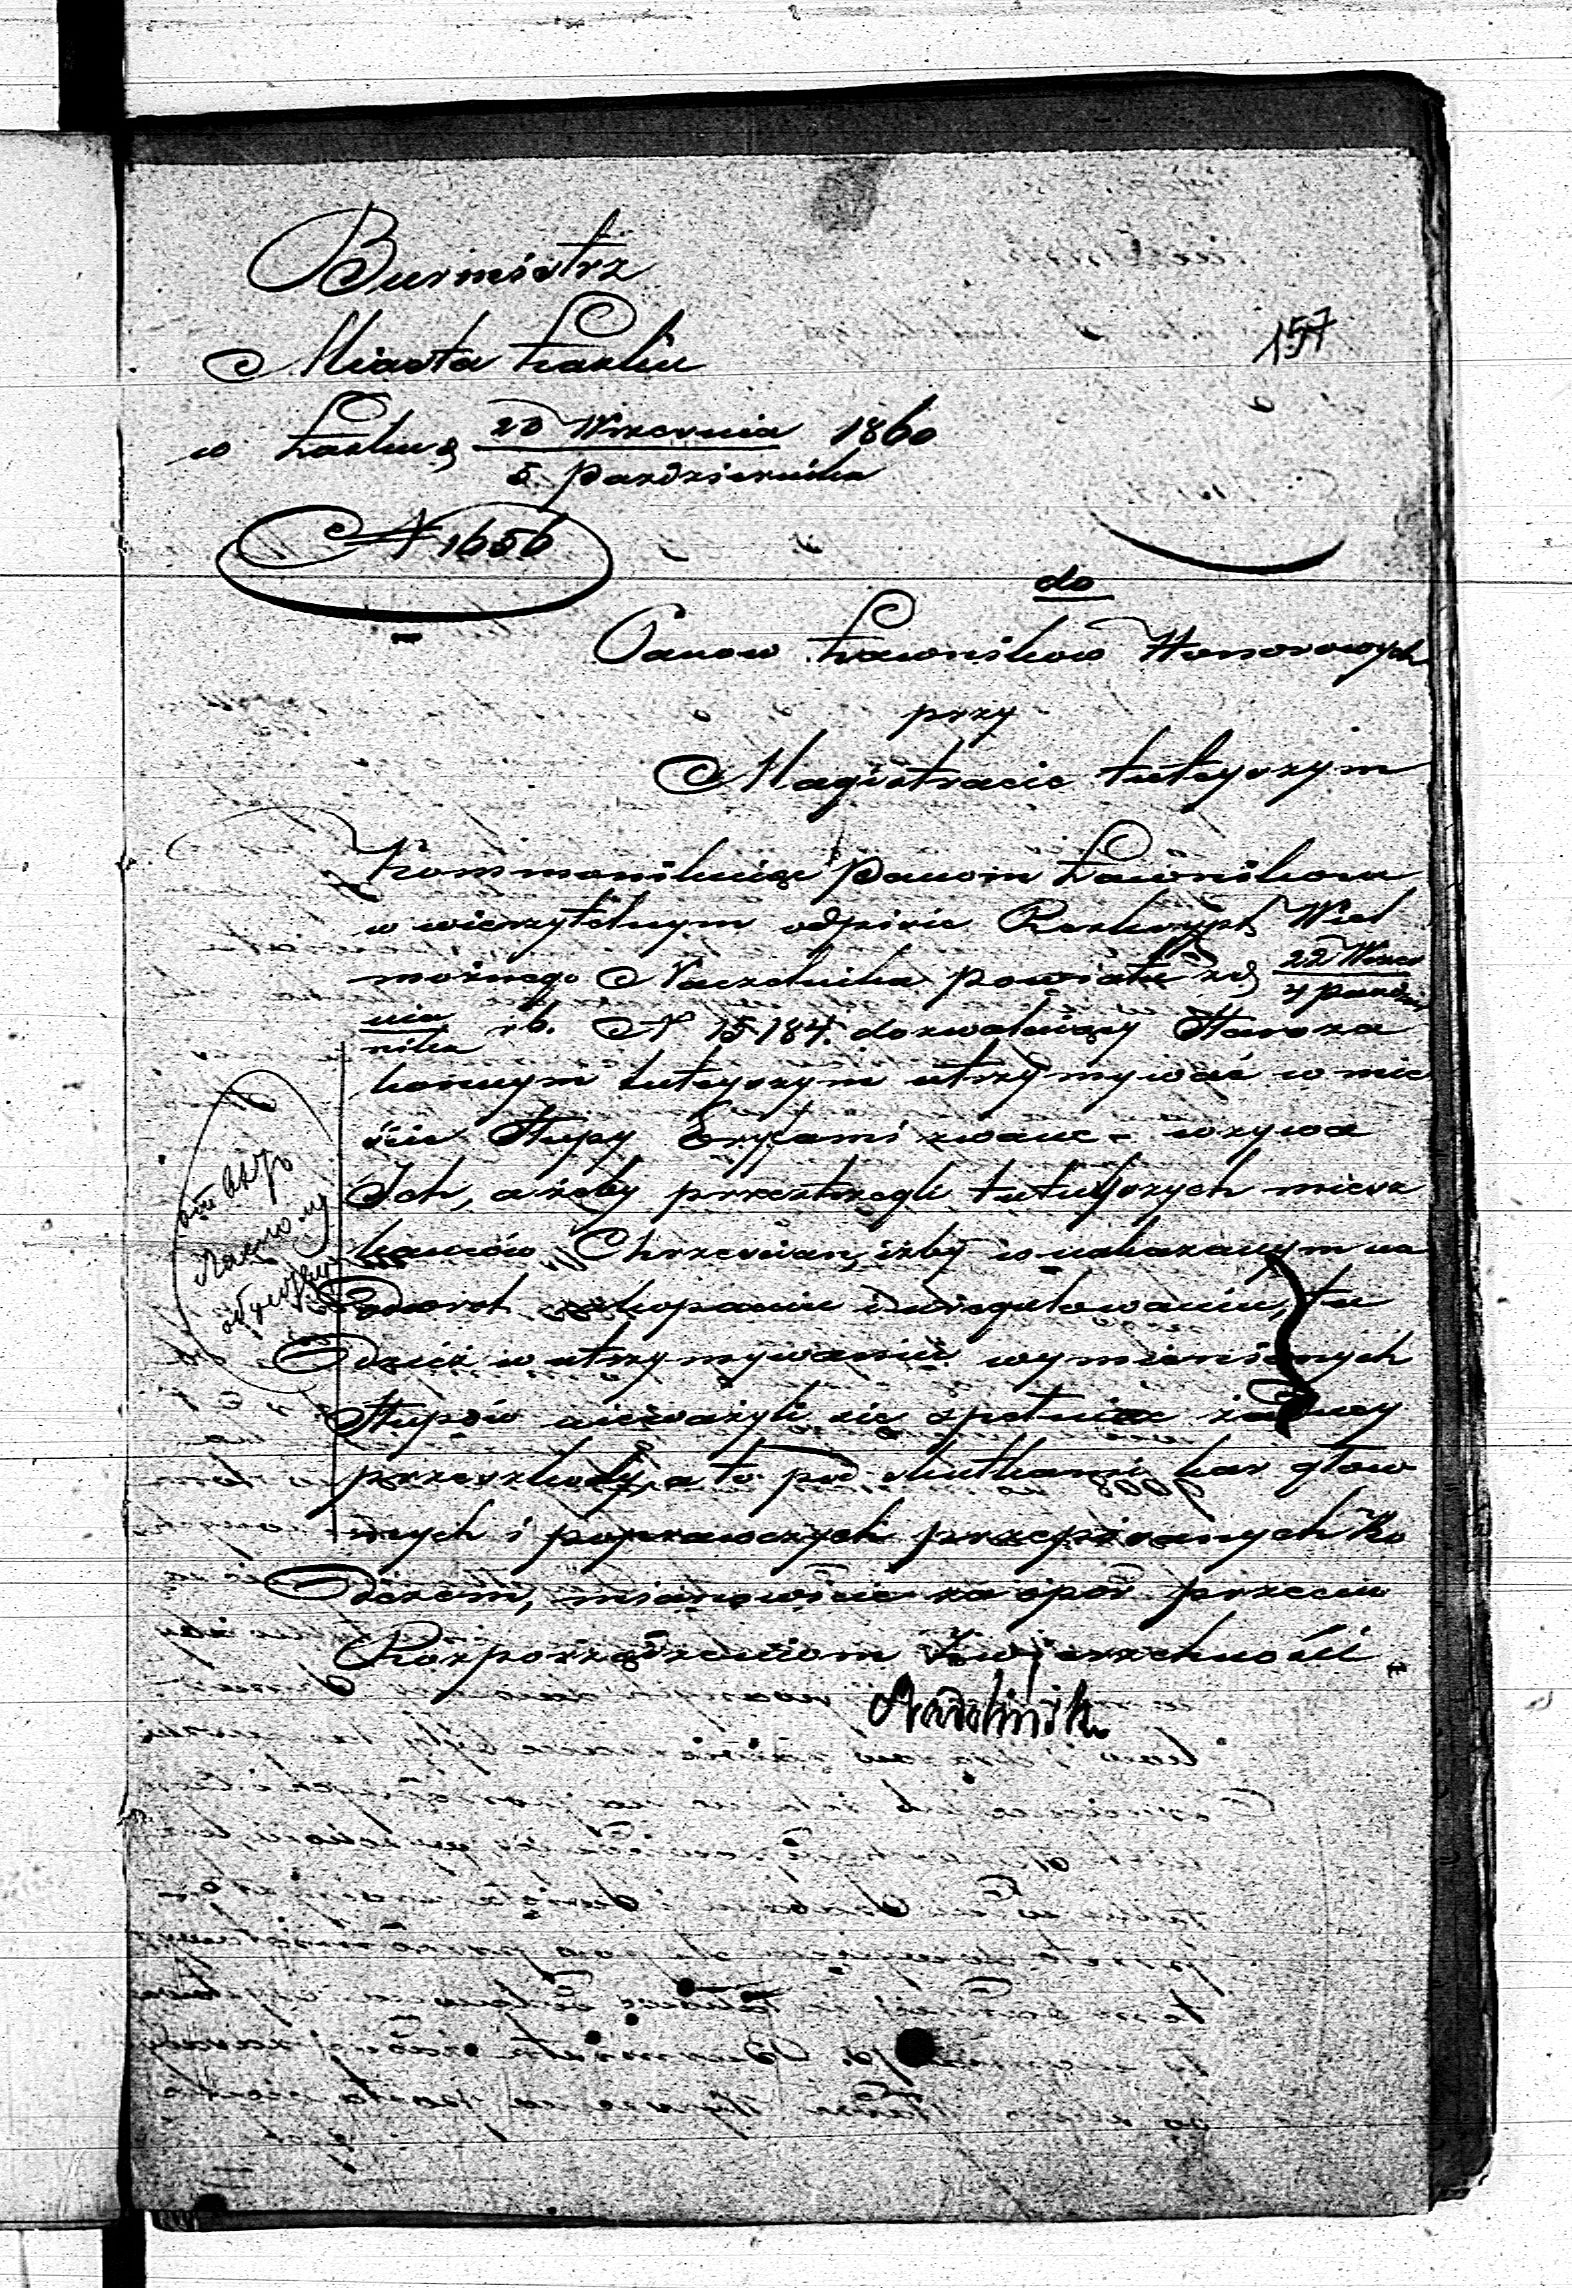 157
Burmistrz
Miasta Łasku
w Łasku d 23 Wrzesnia 1860
5 Pazdziernika
N 1656
do
Panow Ławnikow Honorowych
przy
Magistracie tuteyszym
Kommunikuiąc Panom Ławnikom
w wierzytelnym odpisie Reskrypt Wiel
możnego Naczelnika Powiatu zd 22 Wrześ
4 Paździer
nia rb. N 15184. dozwalaiący Staroza
nika
konnym tuteyszym utrzymywać w mie
ście Słupy Erycami zwane - wzywa
Ich, ażeby przestrzegli tuteyszych miesz
kańców Chrzescian, iżby w nakazanym na
Powrót zakopaniu i wiegulowaniu, tu
dzież w utrzymywaniu wymienionych
Słupów nieważyli się spełniać żadney
przeszkody, a to pod skutkami kar głow
nych i poprawczych przepisanych Ko
dexem, mianowicie za opór przeciw
Rozporządzeniom Zwierzchności